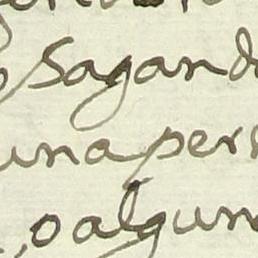 sagand
una pers
o algun